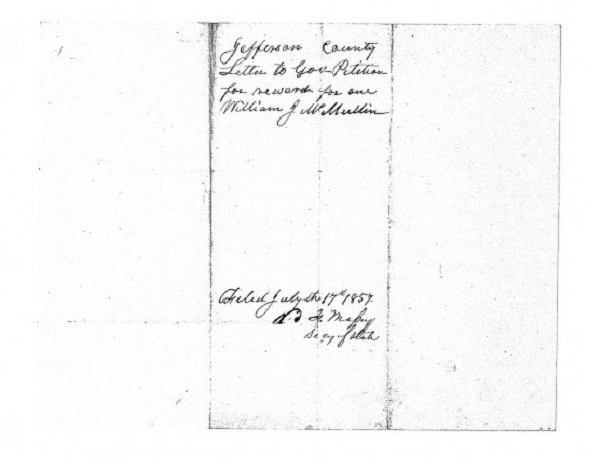 Jefferson County
Letter to Gov Petition
for reward for one
William J McMullin
Filed July the 17th 1857
B. F. Massey
Secy of State